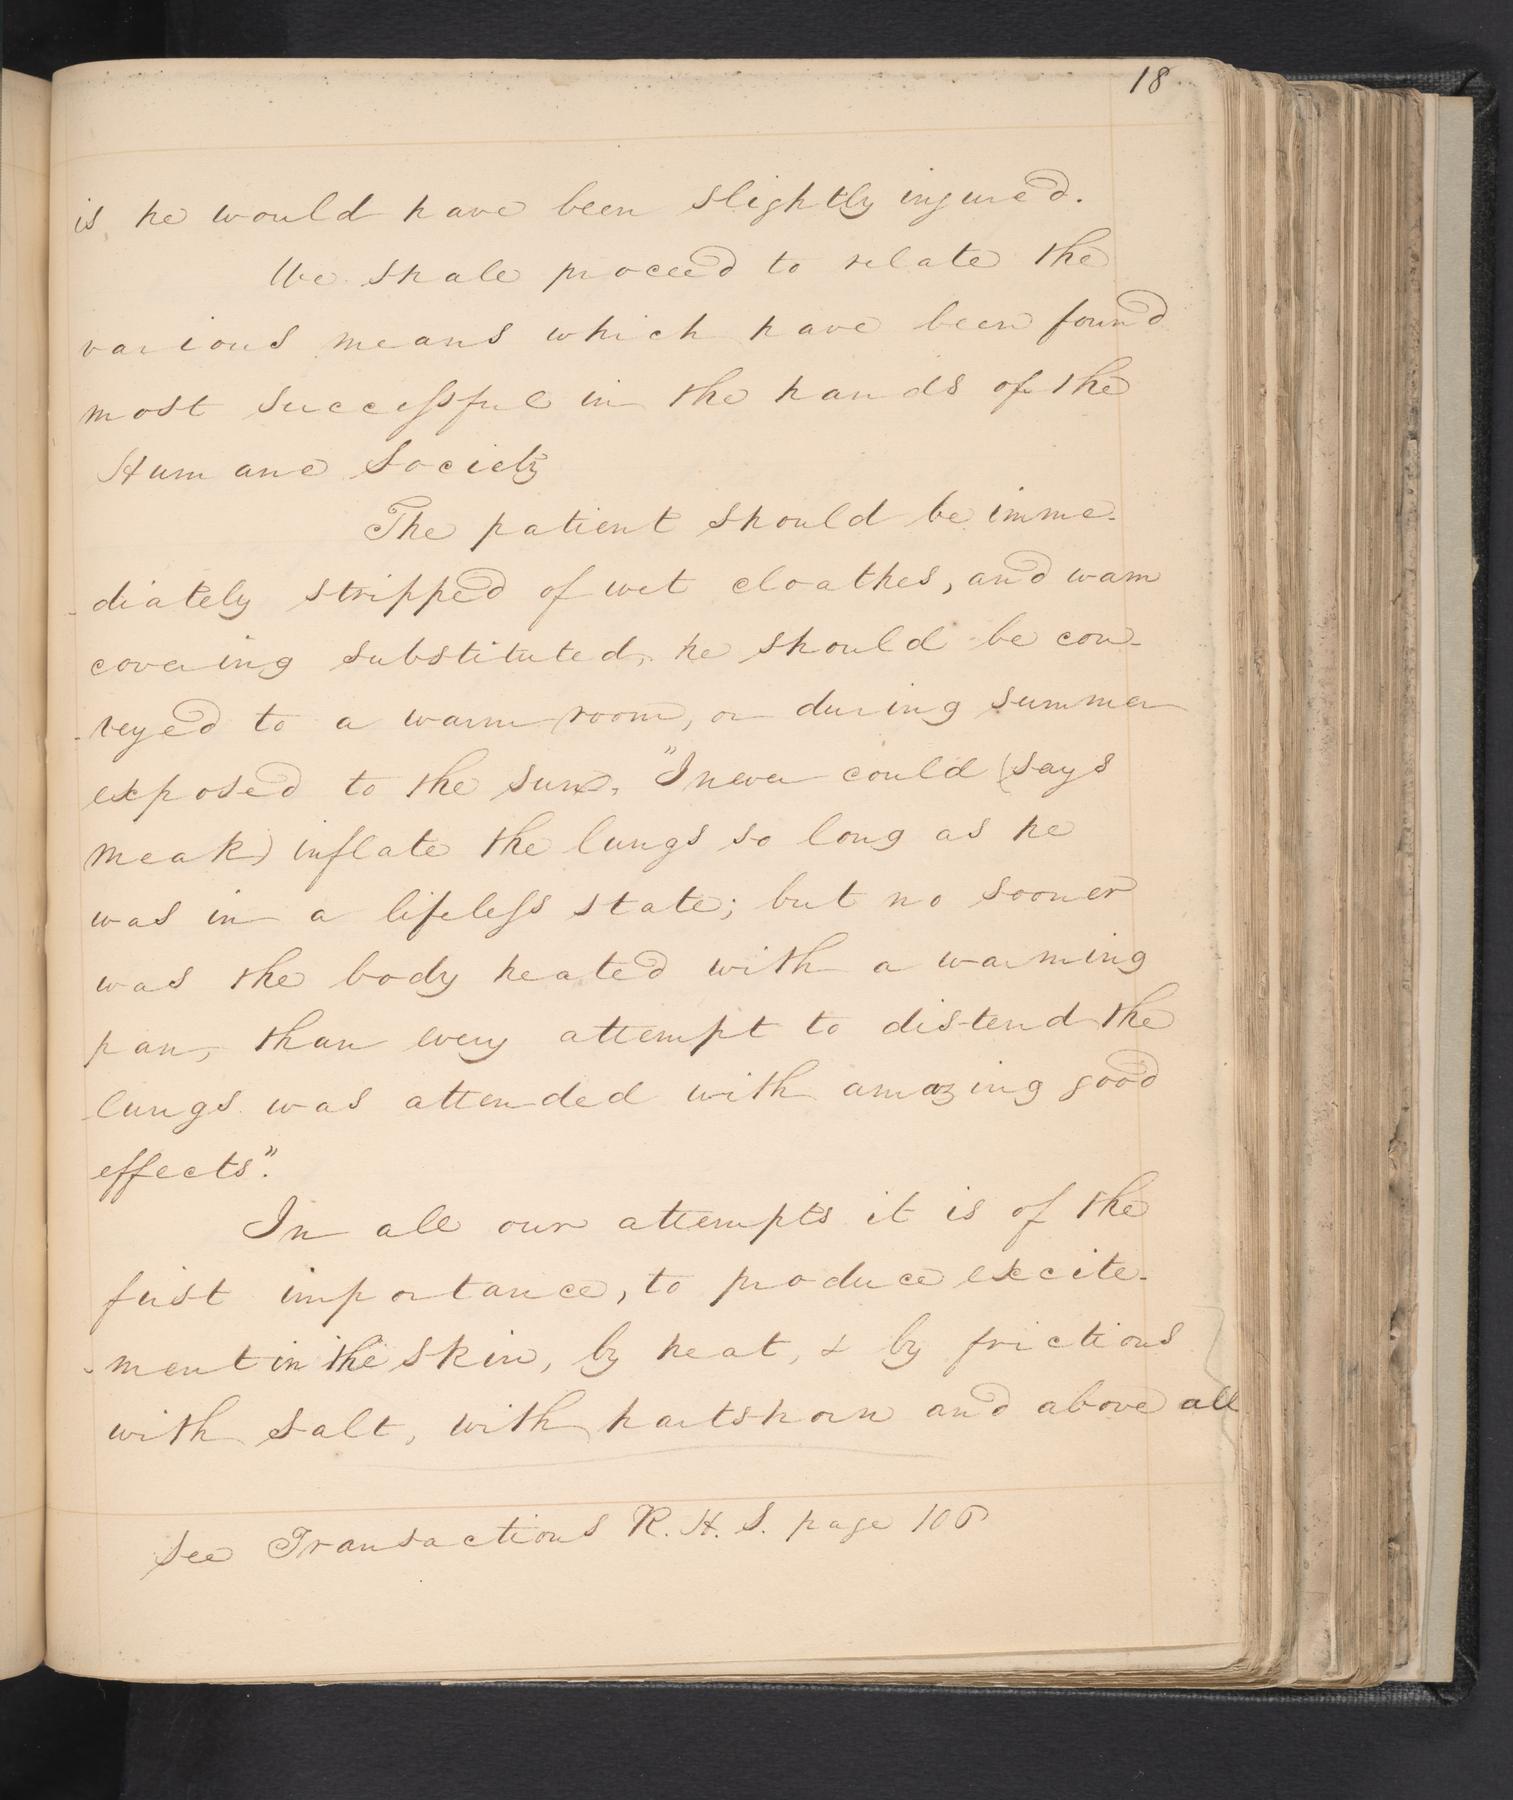 18
is he would have been slightly injured.
We shall proceed to relate the
various means which have been found
most successful in the hands of the
Humane Society
The patient should be imme-
-diately stripped of wet cloathes, and warm
covering substituted, he should be con-
-veyed to a warm room, or during summer
exposed to the sun. "I never could (says
Meak) inflate the lungs so long as he
was in a lifeless state; but no sooner
was the body heated with a warming
pan, than every attempt to distend the
lungs was attended with amazing good
effects".
In all our attempts it is of the
first importance, to produce excite-
-ment in the skin, by heat, & by frictions
with salt, with hartshorn and above all
See Transactions R. H. S. page